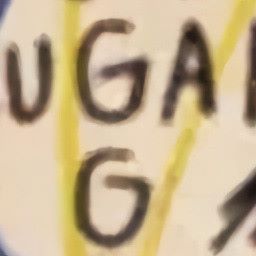 UGA
G